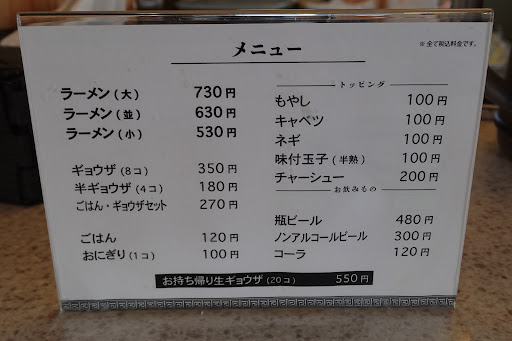 メニュー
※全て税込料金です。
ラーメン(大) 730円
ラーメン(並) 630円
ラーメン(小) 530円
ギョウザ(8コ) 350円
半ギョウザ(4コ) 180円
ごはん・ギョウザセット 270円
ごはん 120円
おにぎり(1コ) 100円
トッピング
もやし 100円
キャベツ 100円
ネギ 100円
味付玉子(半熟) 100円
チャーシュー 200円
お飲みもの
瓶ビール 480円
ノンアルコールビール 300円
コーラ 120円
お持ち帰り生ギョウザ(20コ) 550円